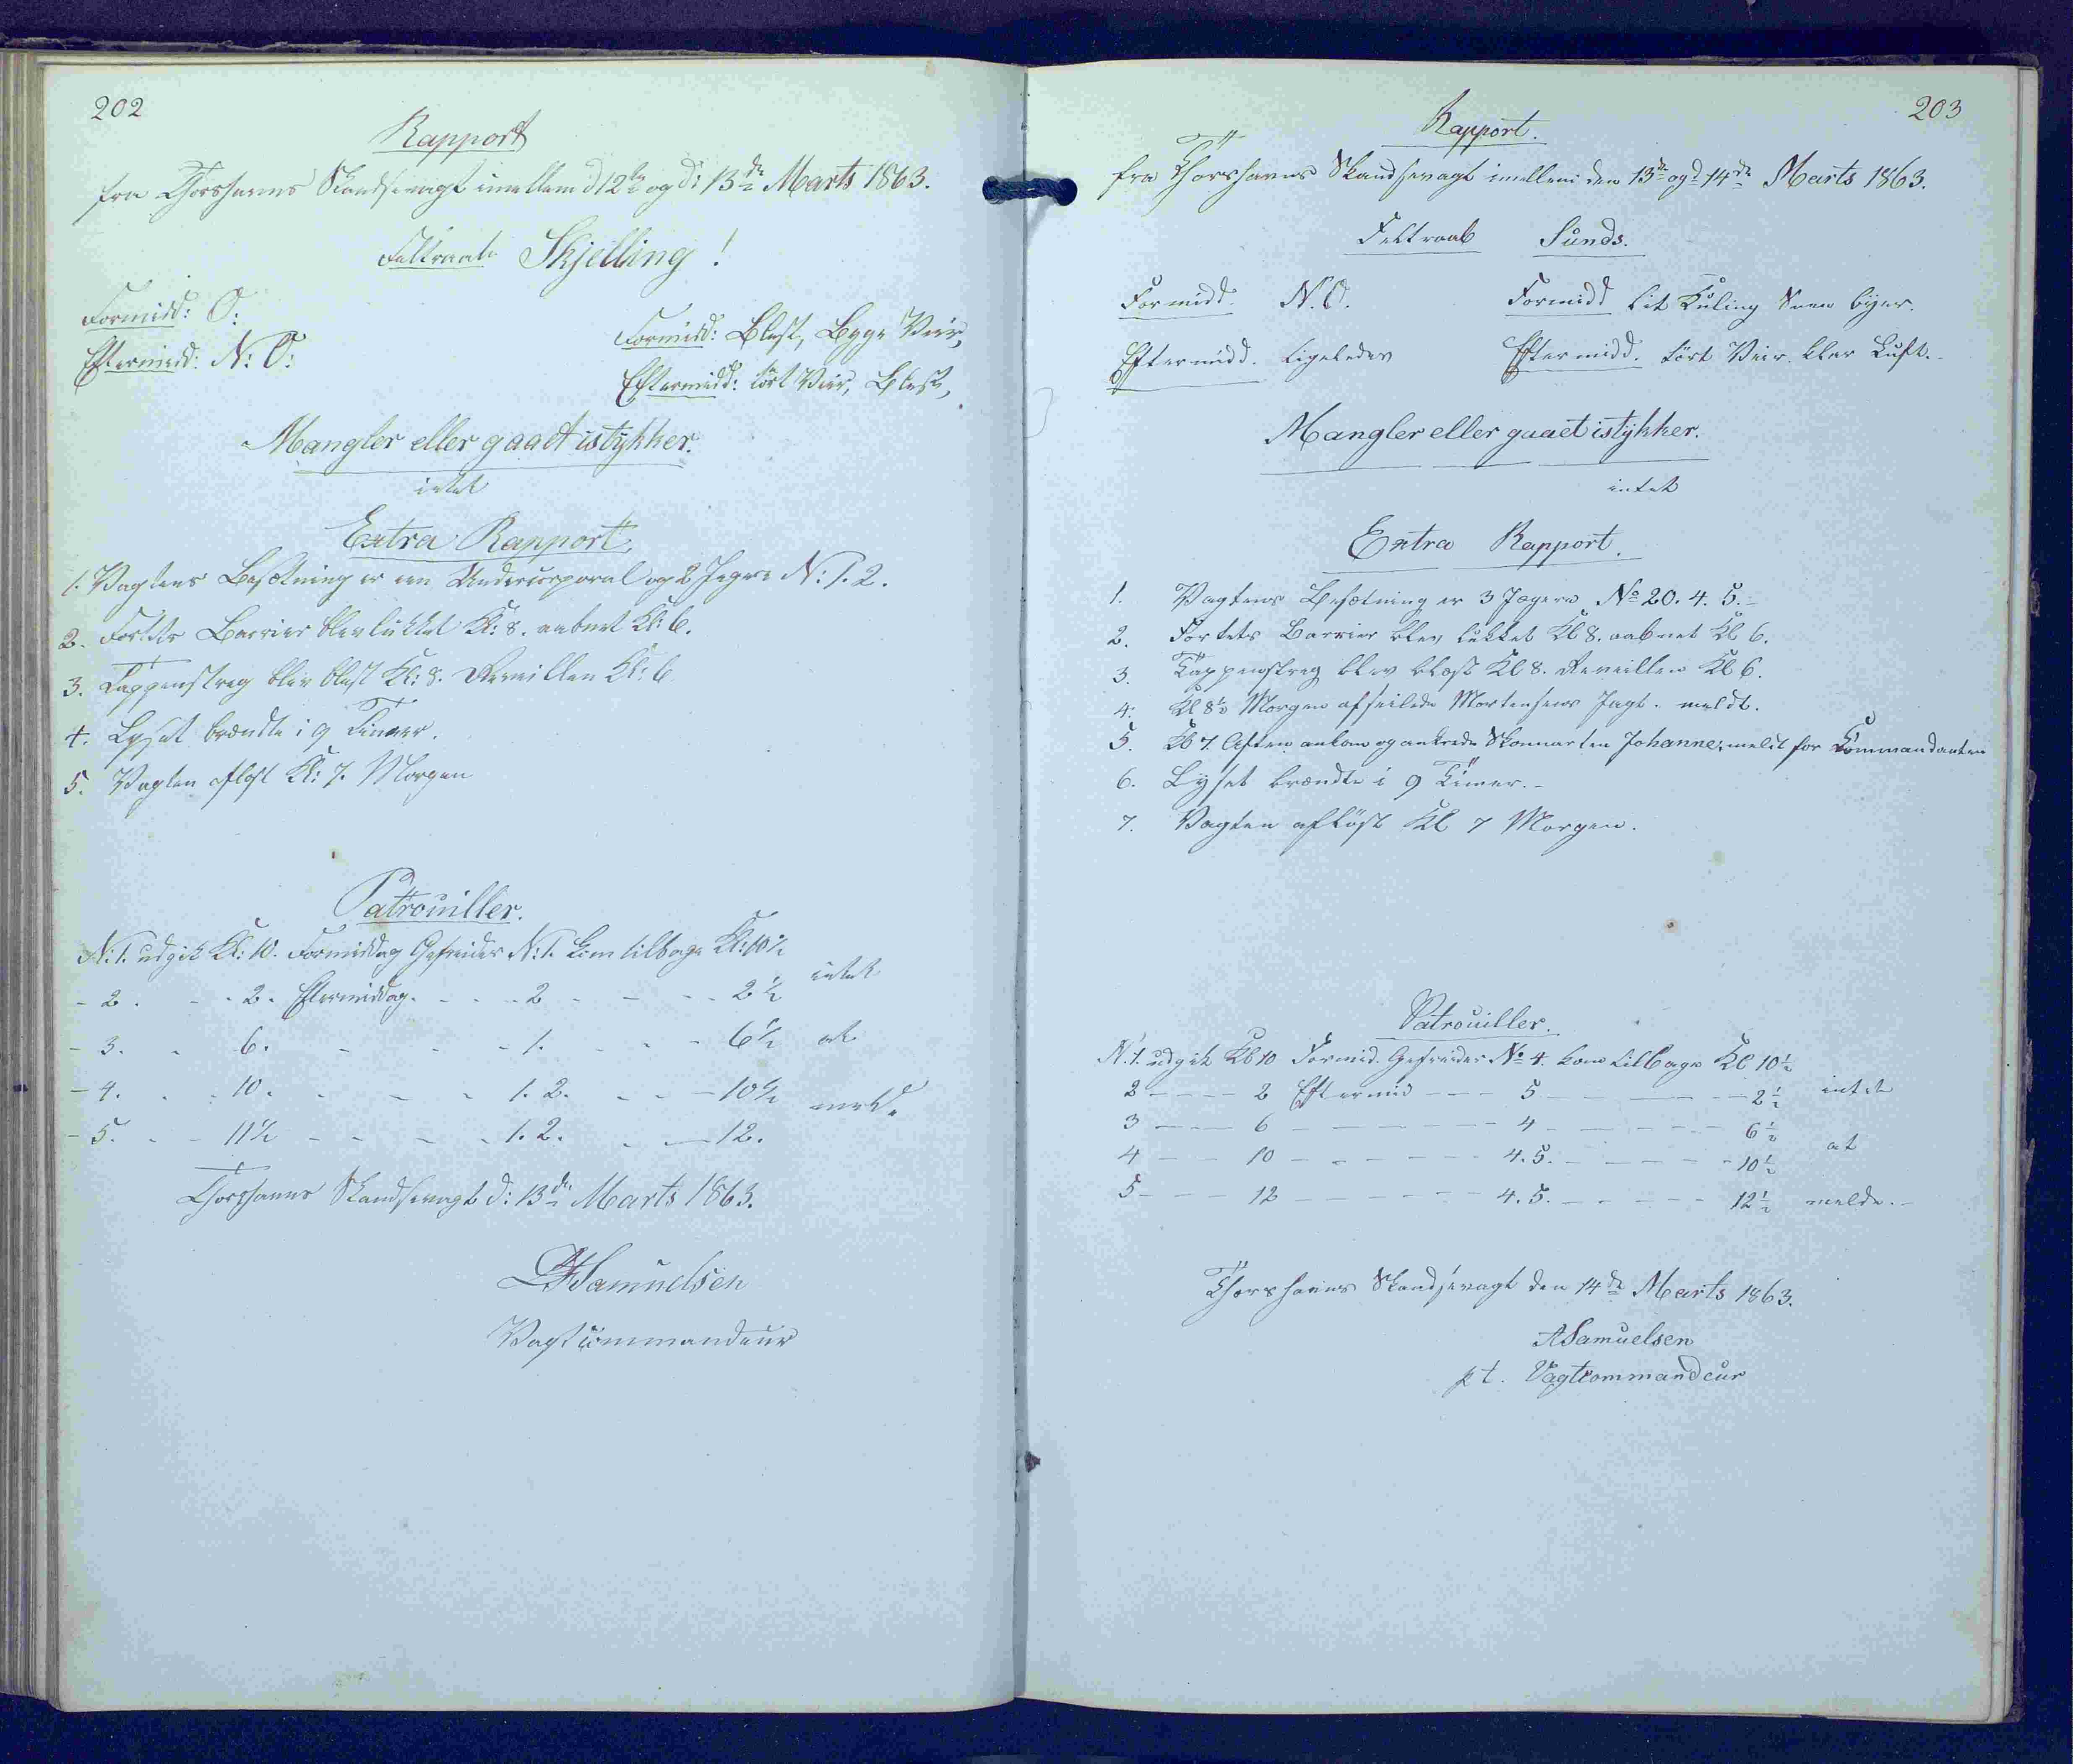 202
Rapport
fra Thorshavns Skandsevagt imellem d 12te og d: 13de Marts 1863.
Feltraab Skjelling!
Formidd: O:
Eftermidd: N: O:
Formidd: Blæst, Byge Veir,
Eftermidd: tört Veir, Blæst,
Mangler eller gaaet istykker.
intet
Extra Rapport
1. Vagtens Besætning er een Undercorporal og 2 Jegere N: 1. 2.
2. Fortets Barrier blev lukket Kl: 8. aabnet Kl: 6.
3. Tappenstreg blev blæst Kl: 8. Reveillen Kl: 6
4. Lyset brændte i 9 Timer.
5. Vagten aflöst Kl: 7. Morgen
Patrouiller.
N: 1. udgik Kl: 10. Formiddag Gefreider N: 1. kom tilbage Kl: 10½
- 2. - - 2. Eftermiddag. - - - 2 - - - - 2½ intet
- 3. - 6. - - - - 1. - - - 6½ at
- 4. - - 10. - - - 1. 2. - - - 10½ meld.
- 5. - - 11½ - - - - 1. 2. - - 12.
Thorshavns Skandsevagt d: 13de Marts 1863.
Samuelsen
Vagtcommandeur
203
Rapport.
fra Thorshavns Skandsevagt imellem den 13de og d 14de Marts 1863.
Feltraab Sunds.
Formidd. N. O. Formidd lit Kuling Snee byer.
Eftermidd. ligeledes Eftermidd. tört Veir. klar Luft.
Mangler eller gaaet istykker.
intet
Extra Rapport.
1. Vagtens Besætning er 3 Jægere No 20. 4. 5. -
2. Fortets Barrier blev lukket Kl 8. aabnet Kl 6.
3. Tappenstreg blev blæst Kl 8. Reveillen Kl 6.
4. Kl 8½ Morgen afseilede Mortensens Jagt. meldt.
5. Kl 7. Aften ankom og ankrede Skonnerten Johanne; meldt for Kommandanten
6. Lyset brændte i 9 Timer. -
7. Vagten aflöst Kl 7 Morgen.
Patrouiller.
N. 1. udgik Kl 10 Formid. Gefreider No 4. kom tilbage Kl 10½
2 - - - - 2 Eftermid - - - 5 - - - - - 2½ intet
3 - - - 6 - - - - - - 4 - - - - - 6½
4 - - 10 - - - - - - 4. 5. - - - - - 10½ at
5 - - - 12 - - - - - - 4. 5. - - - - - 12½ melde. -
Thorshavns Skandsevagt den 14de Marts 1863.
A Samuelsen
pt. Vagtcommandeur